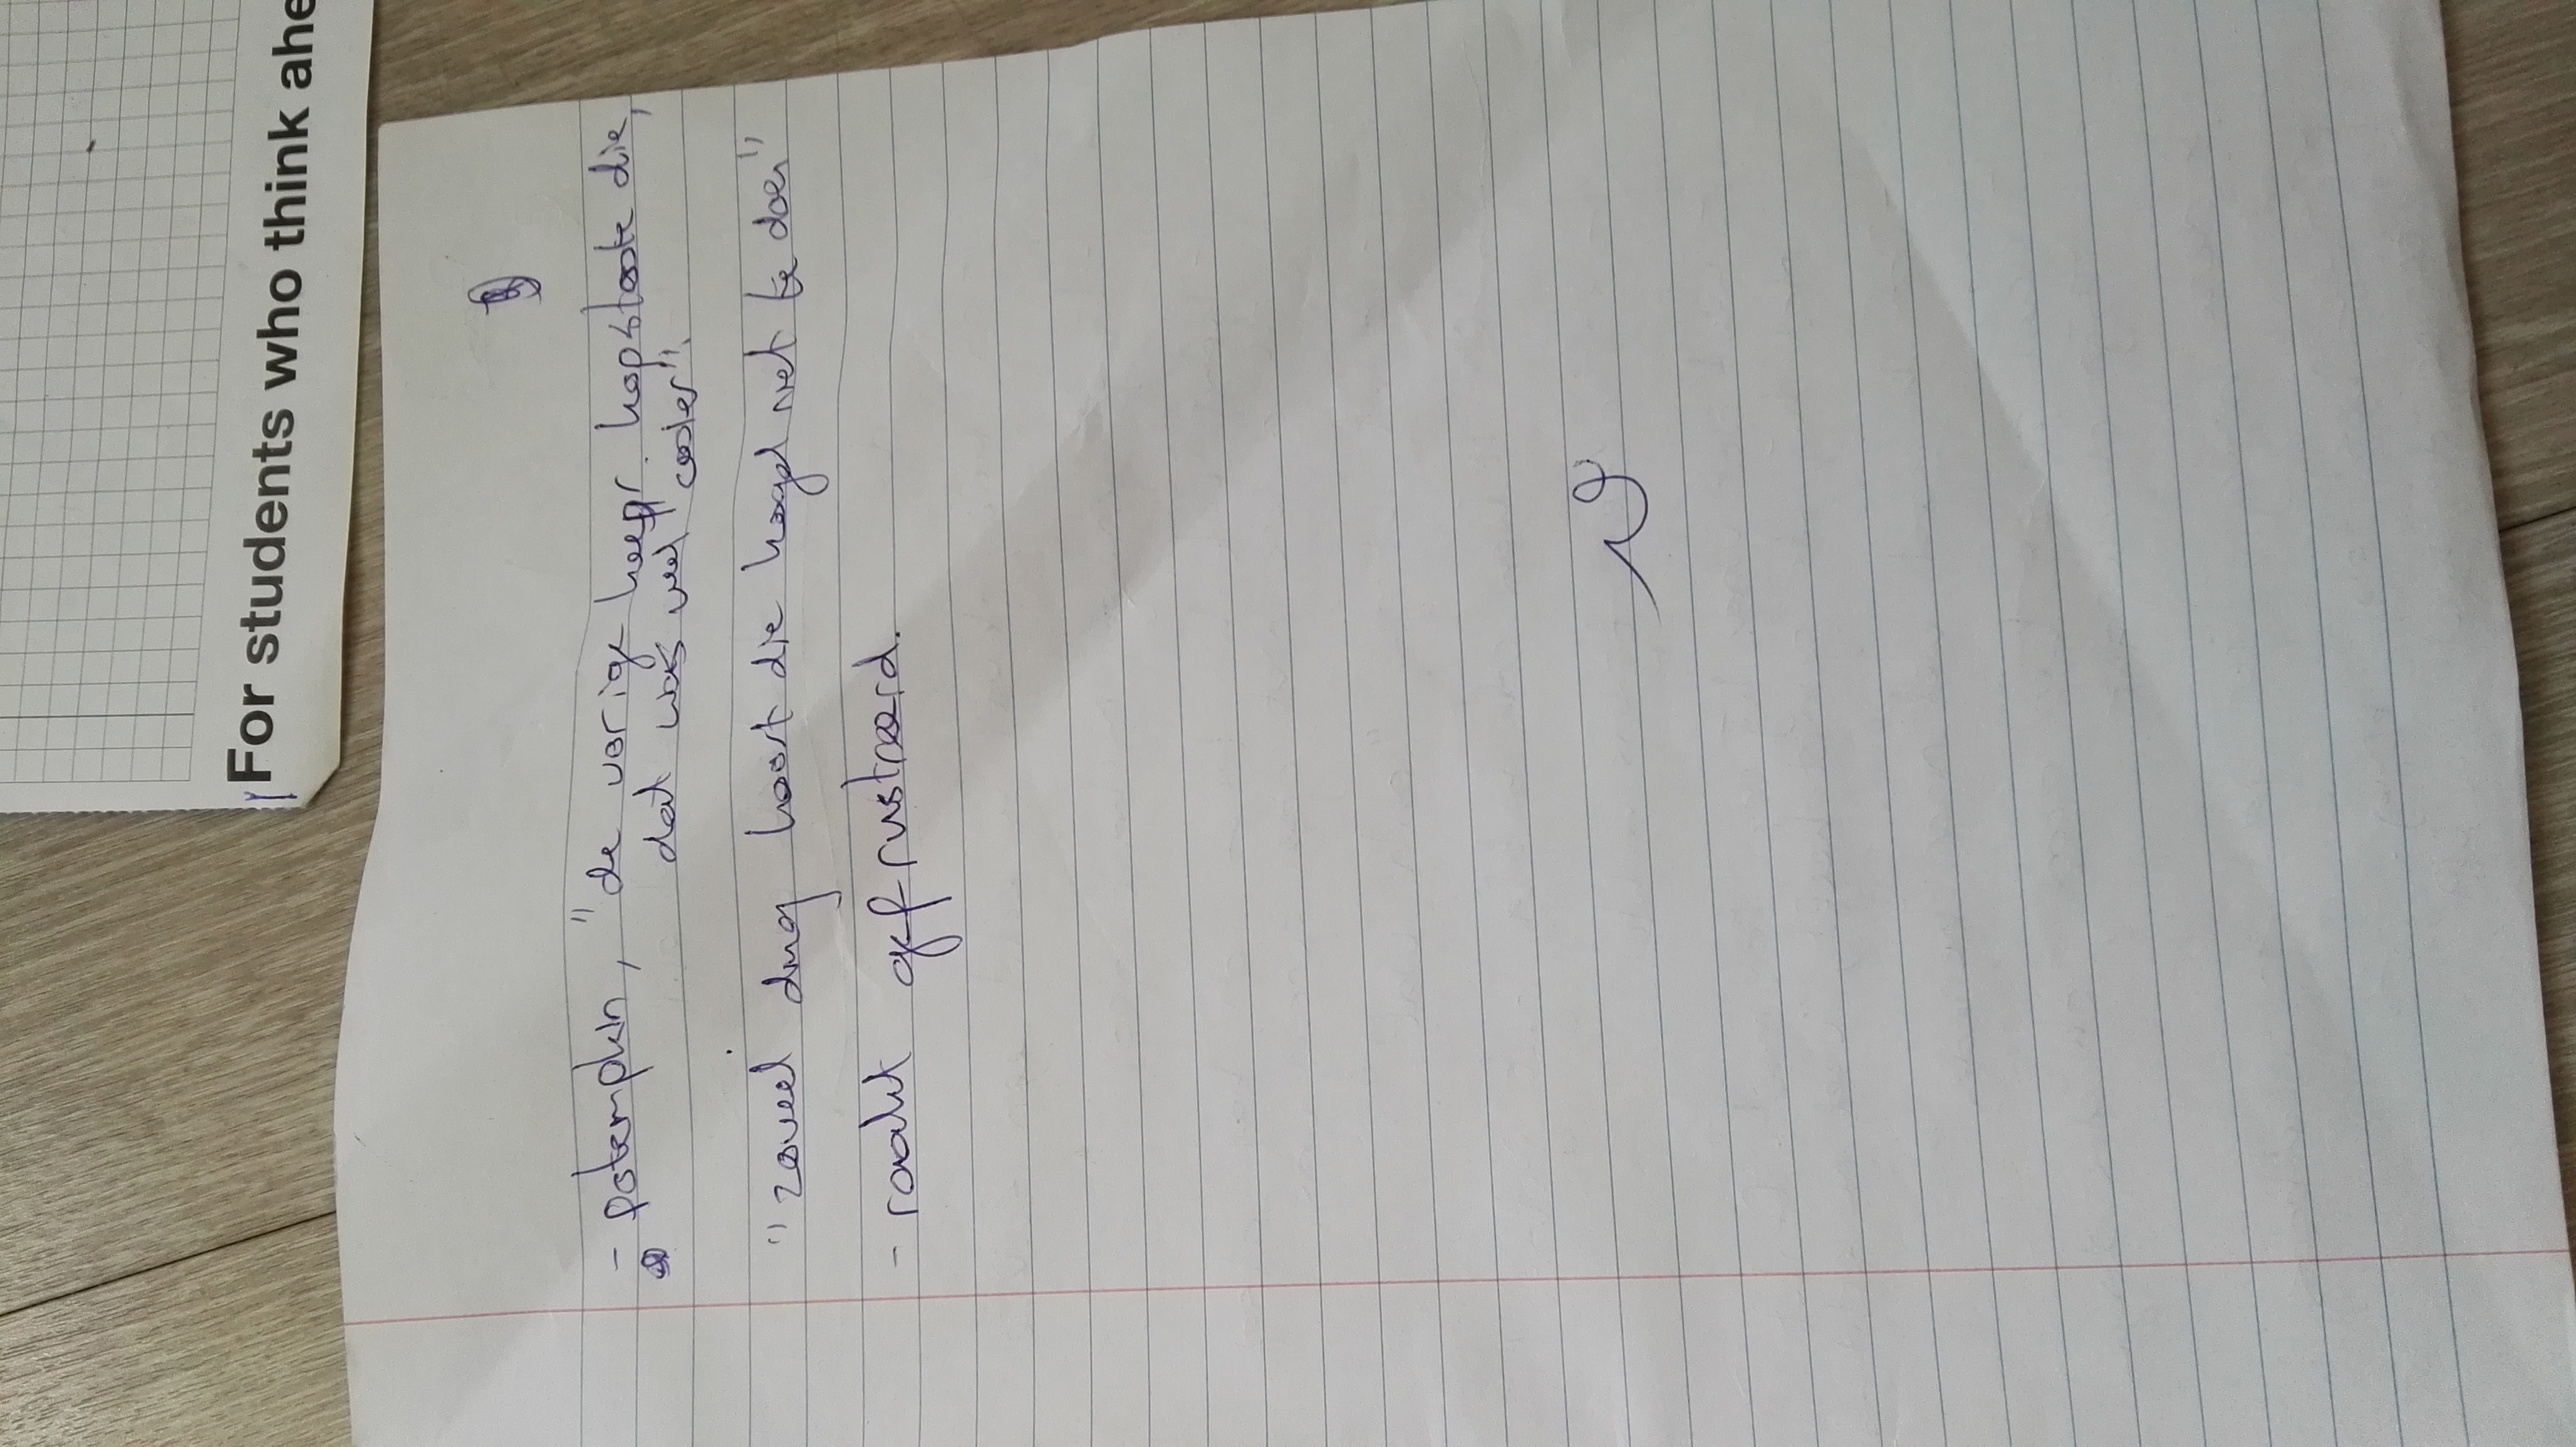 For students who think ahe
- potempkin, "de vorige hoofdstade die,
dat was veel cooler".
"zoveel dingen hoort die niet te doen"
- raakt gefrustreerd.